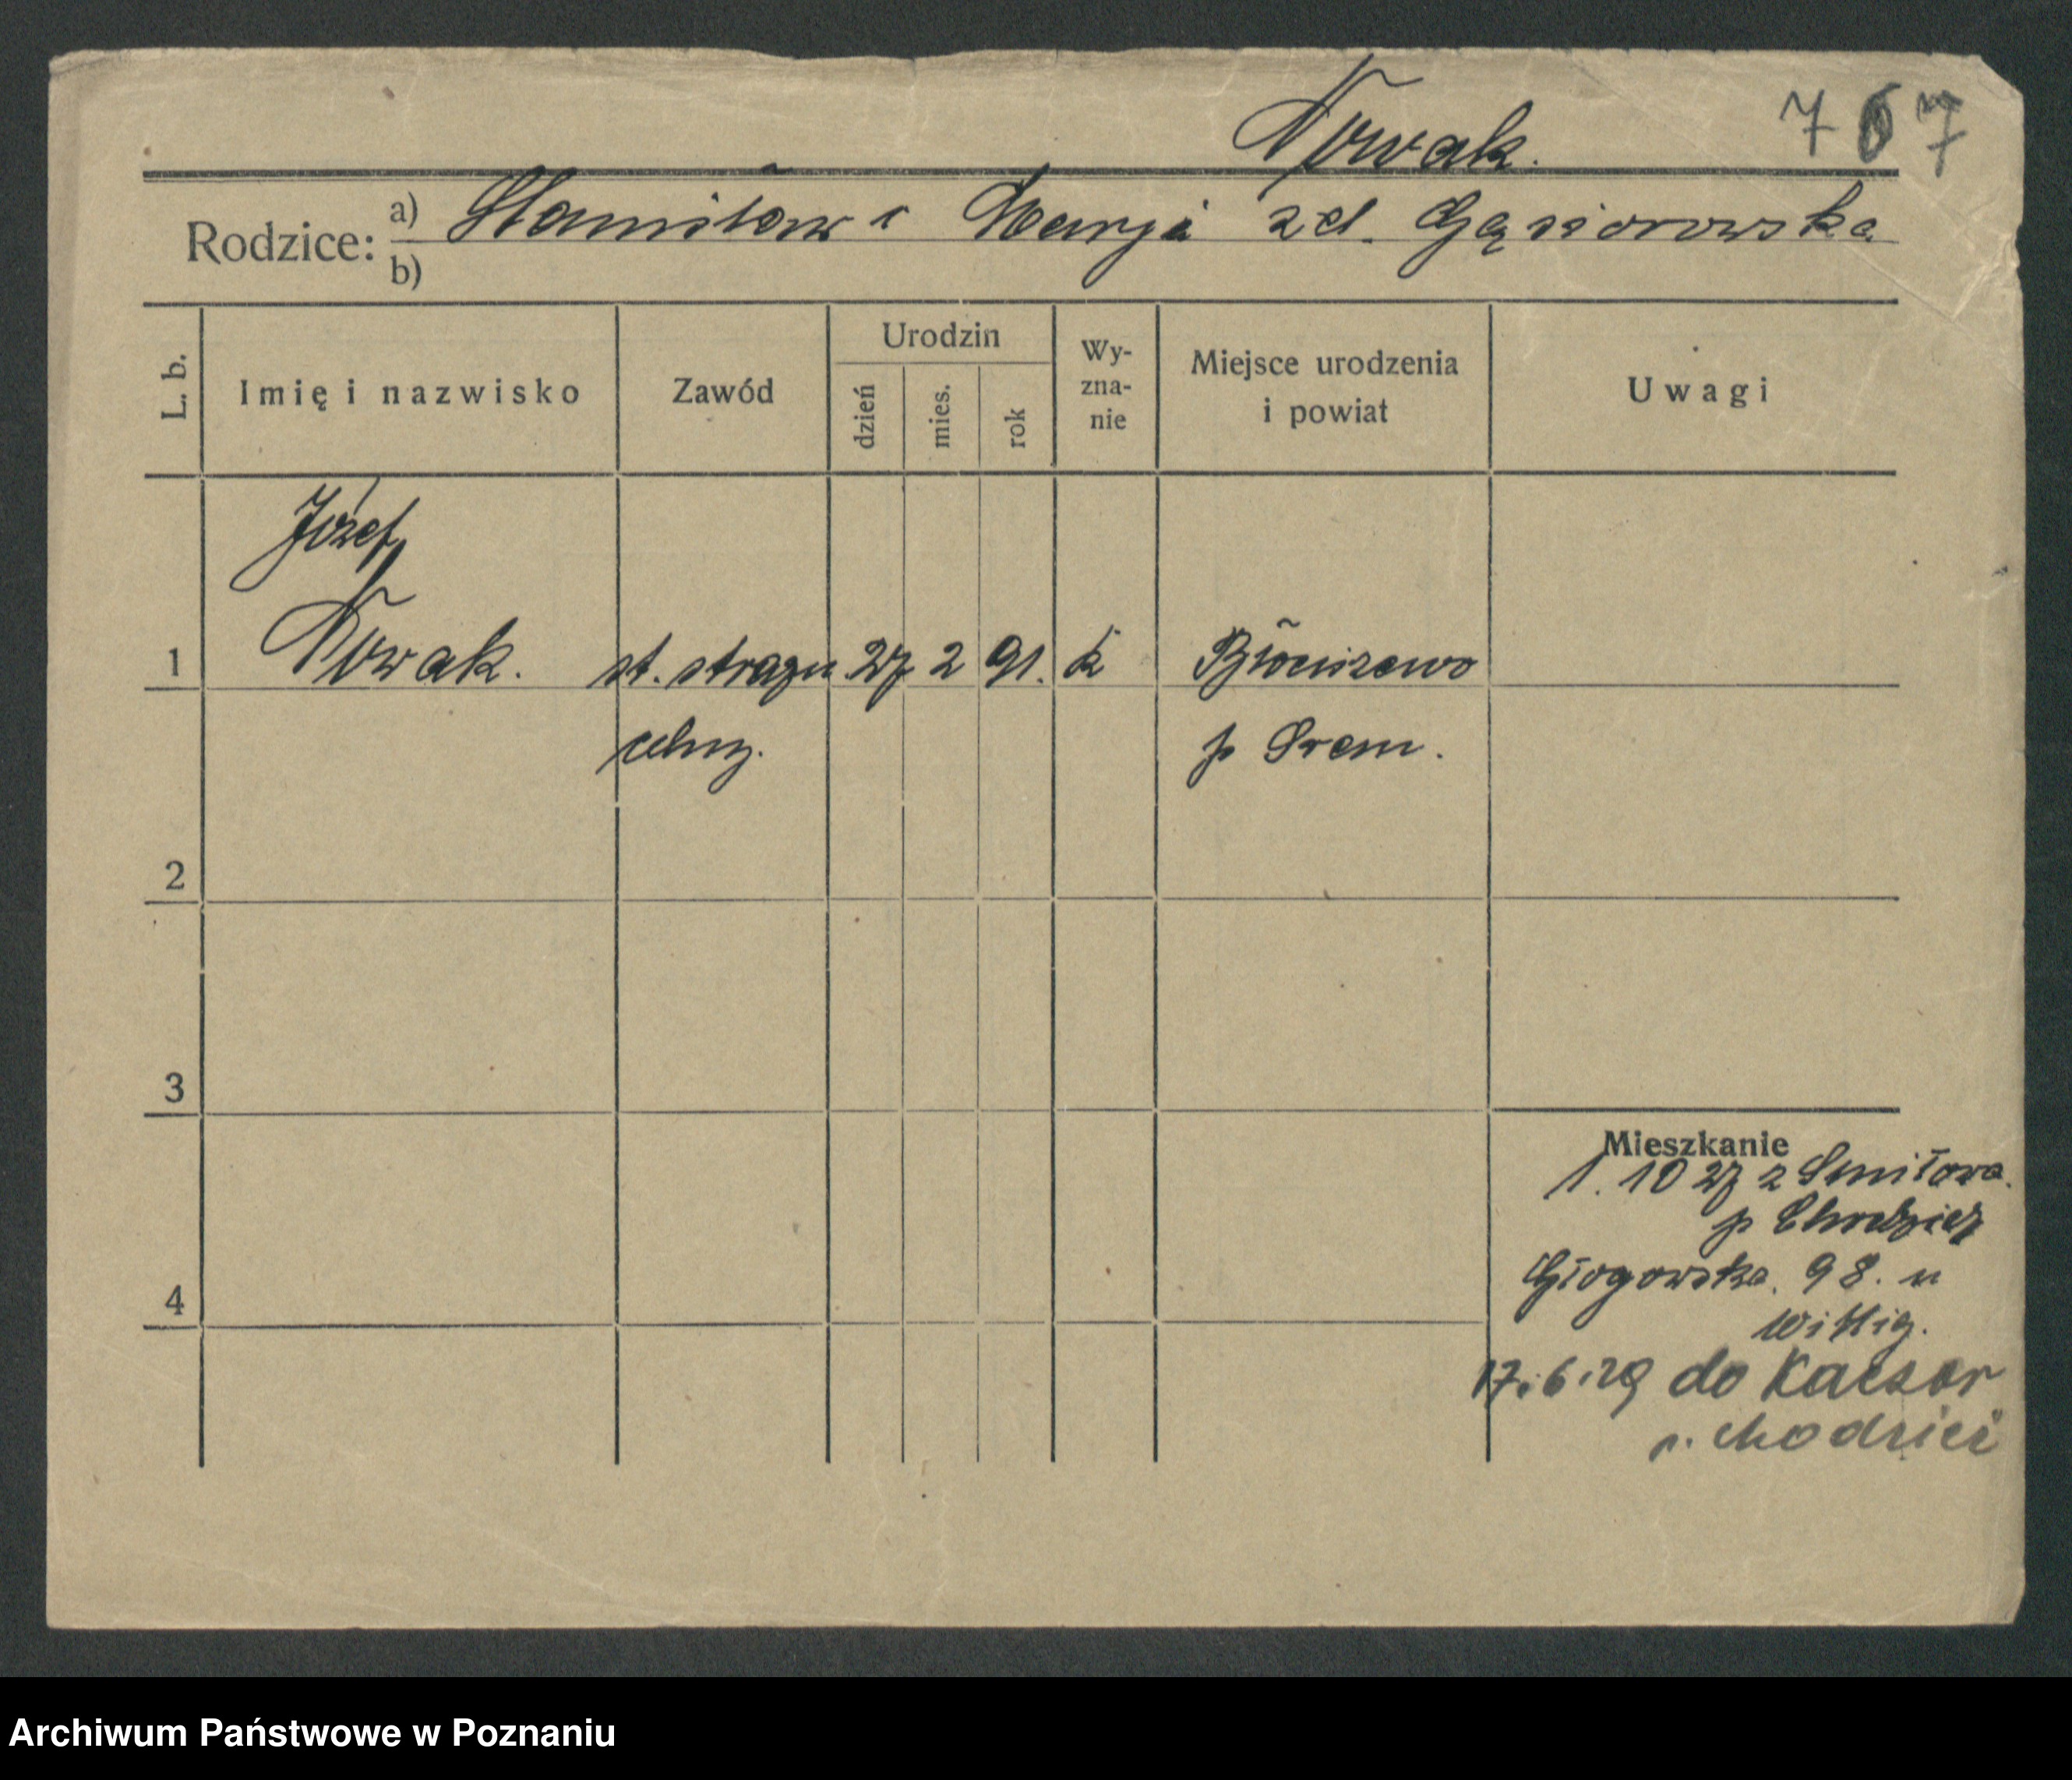 Nowak. 767
Rodzice: a) Stanisław i Marja zd. Gąsiorowska
b)
L. b. Imię i nazwisko Zawód Urodzin dzień mies. rok Wy-zna-nie Miejsce urodzenia i powiat Uwagi
Józef
1 Nowak. st. strażn. 27 2 91. k Błociszewo
celny. p Śrem.
2
3
Mieszkanie
1. 10 27 z Smiłowa.
p Chodzież
4 Głogowska. 98. u
Wittig.
17.6.29 do Kaczor
p. Chodzież
Archiwum Państwowe w Poznaniu